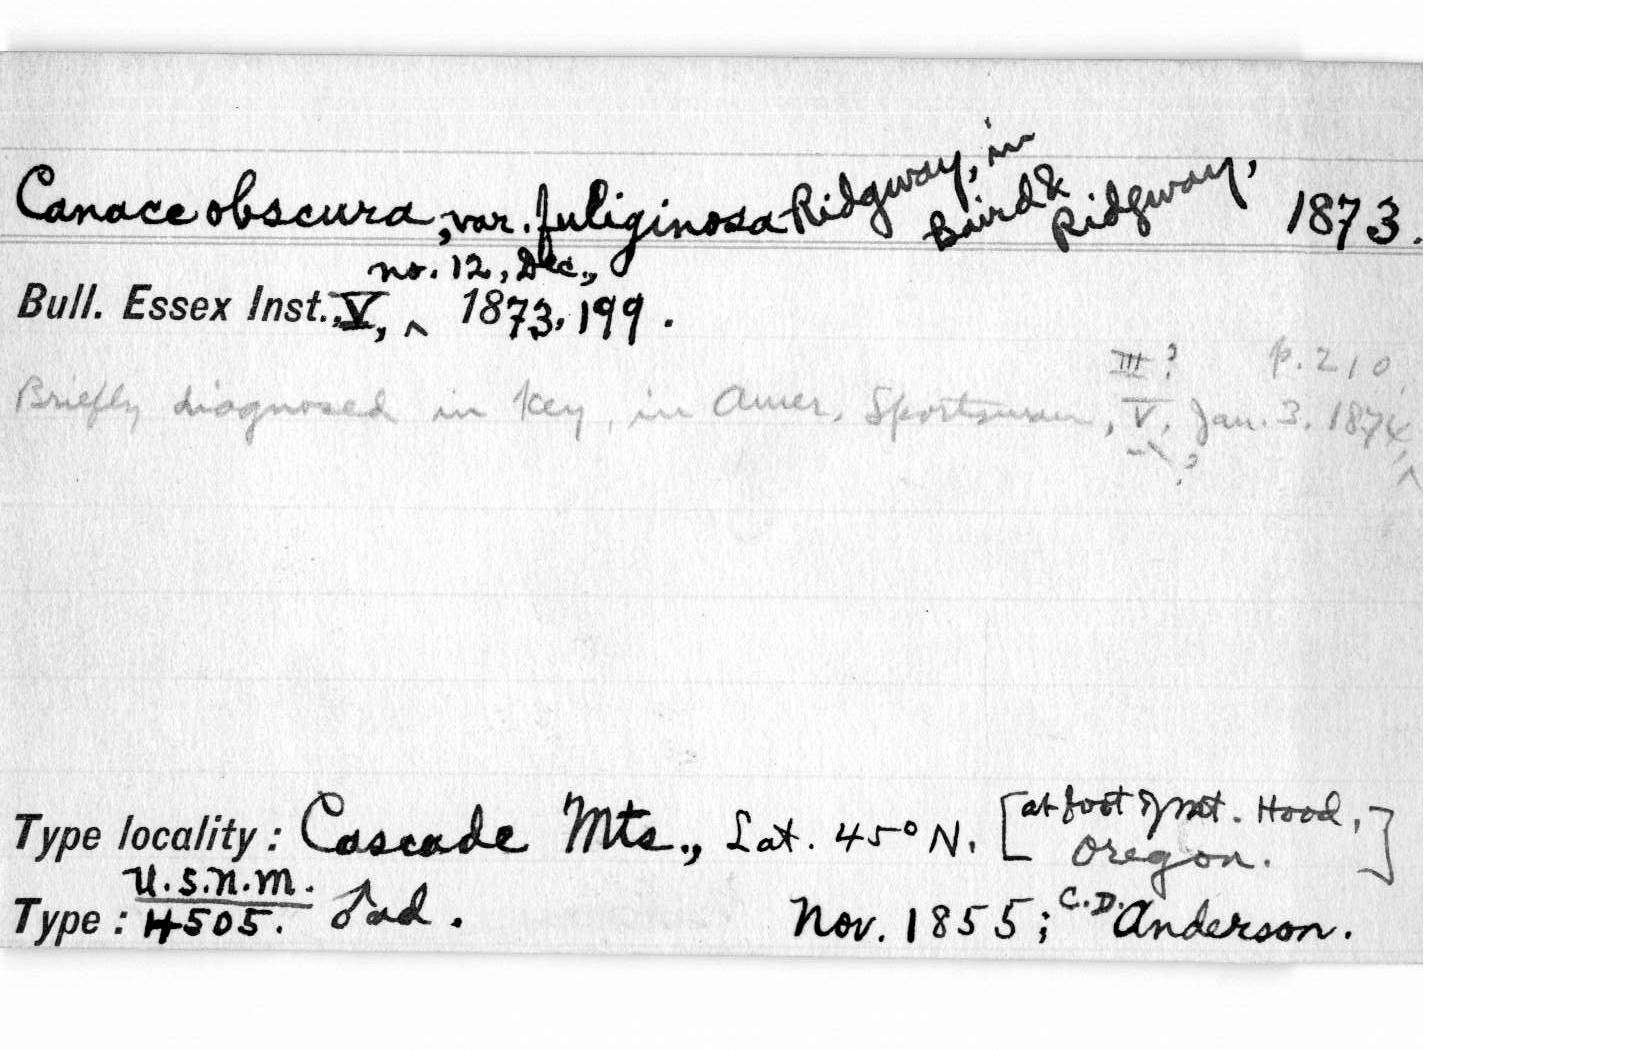 Canace obscura, var. fuliginosa Ridgway, in Baird & Ridgway, 1873.
no. 12, Dec.,
Bull. Essex Inst., V, ^ 1873, 199.
III? p. 210,
Briefly diagnosed in key, in Amer. Sportsman, V, Jan. 3, 1874, ^
?
Type locality: Cascade Mts., Lat. 45° N. [at foot of Mt. Hood, Oregon.]
U.S.N.M.
Type: 4505. ♂ ad. Nov. 1855; C.D. Anderson.